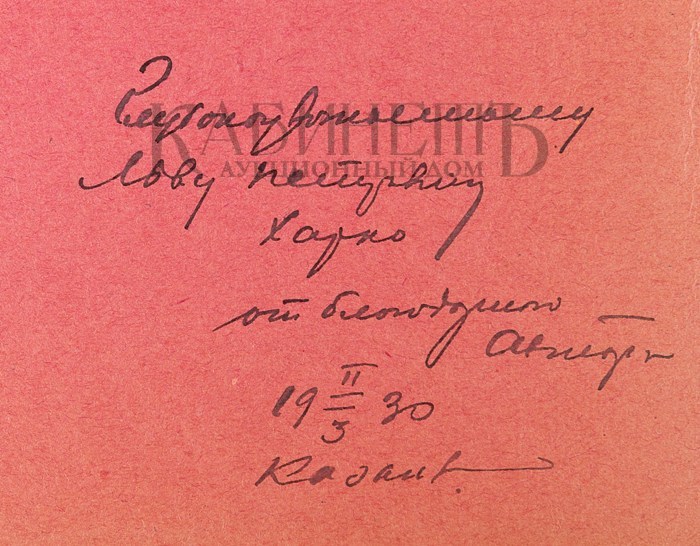 Глубокоуважаемому
КАБИНЕТЪ
АУКЦИОННЫЙ ДОМ
Льву Петровичу
Харко
от благодарного
Автора
19 II/3 30
Казань.